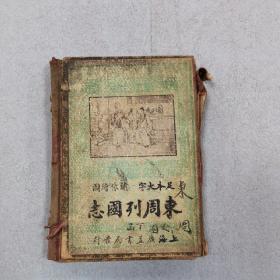 足本大字 繡像繪圖
東周列國志
上海廣益書局發行
東
周